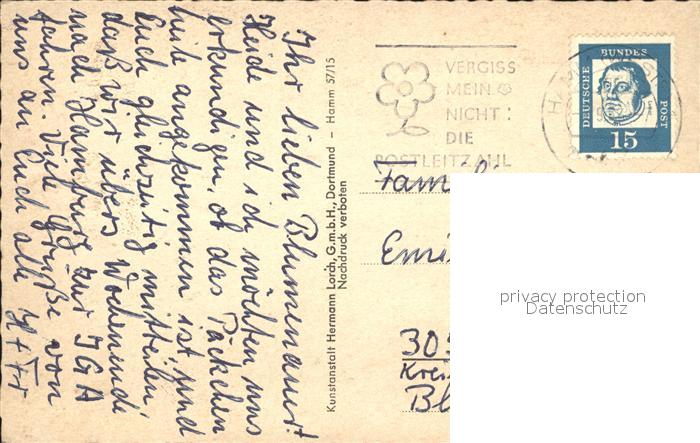 Ihr lieben Blumenauer!
Heide und ich möchten uns
erkundigen, ob das Päckchen
heile angekommen ist und
Euch gleichzeitig mitteilen,
daß wir übers Wochenende
nach Hamburg zur IGA
fahren. Viele Grüße von
uns an Euch alle
Kunstanstalt Hermann Lorch, G.m.b.H., Dortmund – Hamm 57/15
Nachdruck verboten
VERGISS
MEIN
NICHT:
DIE
POSTLEITZAHL
DEUTSCHE
BUNDES
POST
15
Fam
Emi
30
Krei
Bl
privacy protection
Datenschutz